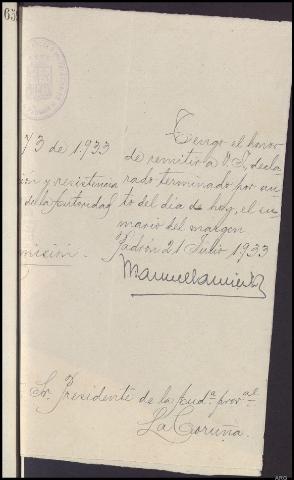 65
73 de 1.933
ón y resistencia
de la fautoridad
misión.
Tengo el honor
de remitir a V.I., decla-
rado terminado por au-
to del día de hoy, el su-
mario del margen
Padrón 21 Julio 1933
Sr. Presidente de la Audª provᵃˡ
La Coruña.
ARG